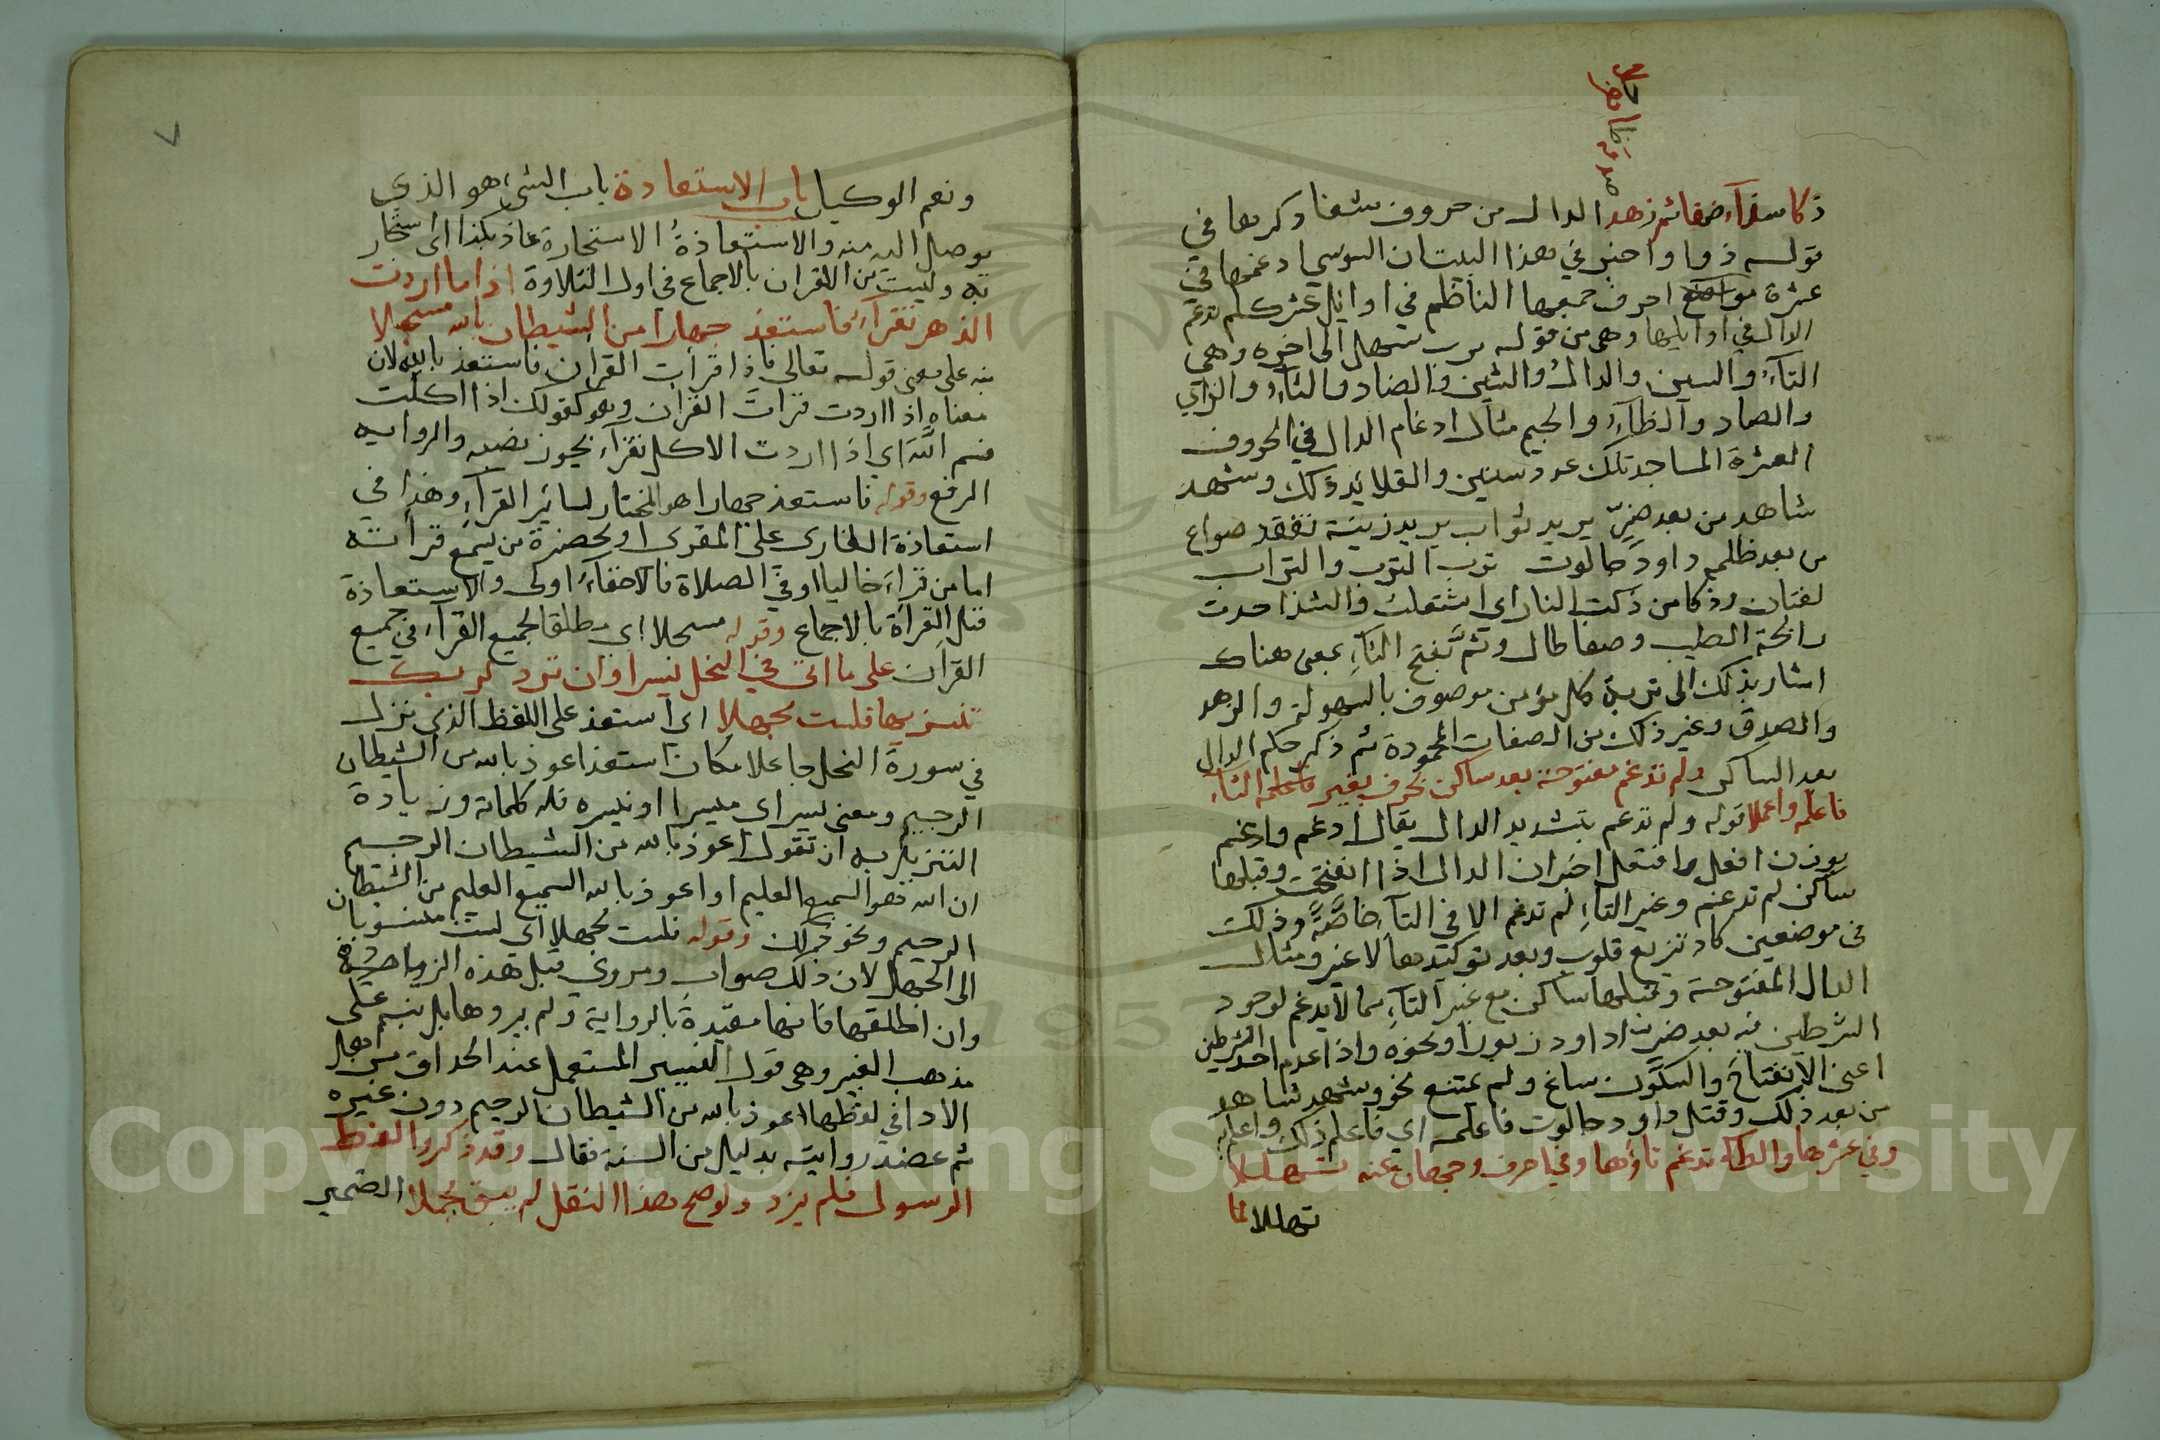 ذكا شذا ضفا ثم زهد الدال من حروف شفا وكر بها في
قوله ذما واخبر في هذا البيت ان السوسي ادغمها في
عشرة مواضع احرف جمعها الناظم في اوايل عشر كلم تدغم
الدال في اوايلها وهي من قوله ترب سهل الى اخره وهي
التآء والسين والدال والشين والضاد والثآء والزاي
والصاد والظآء والجيم مثال ادغام الدال في الحروف
العشرة المساجد تلك عدد سنين والقلائد ذلك وشهد
شاهد من بعد ضرّ يريد ثواب يريد زينة نفقد صواع
من بعد ظلمه داود جالوت ترب الترب والتراب
لغتان وذكا من ذكت النار اي اشتعلت والشذا حدت
رائحة الطيب وضفا طال وثَّم بفتح الثآءِ بمعنى هناك
اشار بذلك الى تربة كل مؤمن موصوف بالسهولة والزهد
والصدق وغير ذلك من الصفات المحمودة ثم ذكر حكم الدال
بعد الساكن ولم تدغم مفتوحة بعد ساكن بحرف بغير التاء
فاعلمه واعملا قوله ولم تدغم بتشديد الدال يقال ادغم وادغم
بوزن افعل وافتعل اخبر ان الدال اذا انفتحت وقبلها
ساكن لم تدغم وغير التآءِ لم تدغم الا في التآءِ خاصَّةً وذلك
في موضعين كاد تزيغ قلوب وبعد توكيدها لا غير ومثال
الدال المفتوحة وقبلها ساكن مع غير التآءِ مما لا يدغم لوجود
الشرطين فيه بعد ضرآ داود زبورا ونحوه واذا عدم احد الشرطين
اعني الانفتاح والسكون ساغ ولم يمتنع نحو وشهد شاهد
من بعد ذلك وقتل داود جالوت فاعلمه اي فاعلم ذلك واعمل به
وفي عشرها والطاء تدغم تاؤها وفي احرف وجهان عنه تهللا
تهللا فما
ونعم الوكيل باب الاستعاذة باب الشئ هو الذي
يوصل اليه منه والاستعاذةُ الاستجارة عاذ بكذا اى استجار
به وليست من القران بالاجماع في اول التلاوة اذا ما اردت
الدهر تقرآءُ فاستعذ جهارا من الشيطان بالله مسجلا
نبه على معنى قوله تعالى فاذا قرأت القرآن فاستعذ بالله لان
معناه اذا اردت قرأت القرآن وهو كقولك اذا اكلت
فسم الله اي اذا اردت الاكل تقرآء يجوز نصبه والروايه
الرفع وقوله فاستعذ جهارا هو المختار لسائر القرآءِ وهذا في
استعاذة القارى على المقرى او بحضرة من يسمع قرأته
اما من قرآء خاليا او في الصلاة فالاخفآءُ اولى والاستعاذة
قبل القرأة بالاجماع وقوله مسجلا اى مطلقا لجميع القرآء في جميع
القرآن على ما اتى في النحل يسرا وان تزد لربك
تنزيها فلست مجهلا اي استعذ على اللفظ الذي نزل
في سورة النحل جاعلا مكان استعذ اعوذ بالله من الشيطان
الرجيم ومعنى يسرا اى ميسرا او تيسره قلة كلماته وزيادة
التنزيه ان تقول اعوذ بالله من الشيطان الرجيم
ان الله هو السميع العليم او اعوذ بالله السميع العليم من الشيطان
الرجيم ونحو ذلك وقوله فلست مجهلا اي لست منسوبا
الى الجهل لان ذلك صواب ومروي قبل هذه الزيادة
وان اطلقها فانها مقيدة بالرواية ولم يروها بل نبه على
مذهب الغير وهي قول التيسير المستعمل عند الحذاق من اهل
الادا في لفظها اعوذ بالله من الشيطان الرجيم دون غيره
ثم عضد روايته بدليل من السنة فقال وقد ذكروا لفظ
الرسول فلم يزد ولو صح هذا النقل لم يبق مجملا الضمير
٧
Copyright © King Saud University
1957